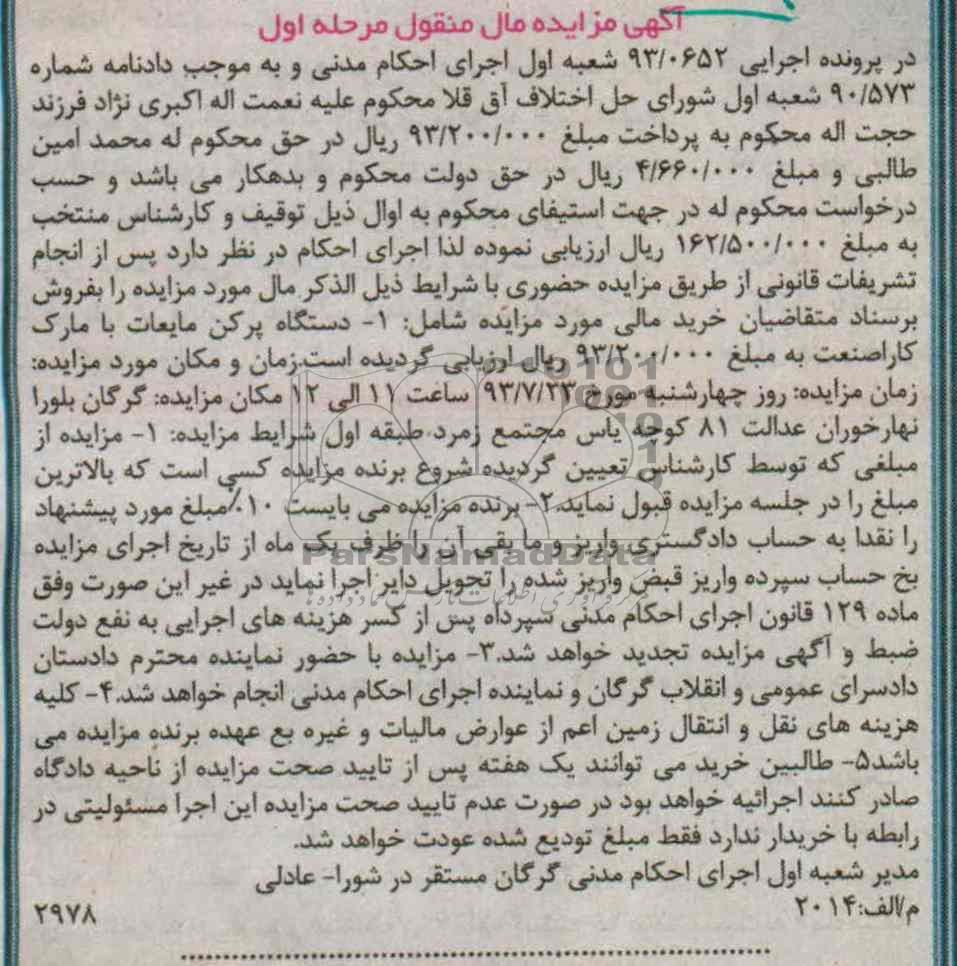 آگهی مزایده مال منقول مرحله اول
در پرونده اجرایی ۹۳/۰۶۵۲ شعبه اول اجرای احکام مدنی و به موجب دادنامه شماره
۹۰/۵۷۳ شعبه اول شورای حل اختلاف آق قلا محکوم علیه نعمت اله اکبری نژاد فرزند
حجت اله محکوم به پرداخت مبلغ ۹۳/۲۰۰/۰۰۰ ریال در حق محکوم له محمد امین
طالبی و مبلغ ۴/۶۶۰/۰۰۰ ریال در حق دولت محکوم و بدهکار می باشد و حسب
درخواست محکوم له در جهت استیفای محکوم به اوال ذیل توقیف و کارشناس منتخب
به مبلغ ۱۶۲/۵۰۰/۰۰۰ ریال ارزیابی نموده لذا اجرای احکام در نظر دارد پس از انجام
تشریفات قانونی از طریق مزایده حضوری با شرایط ذیل الذکر مال مورد مزایده را بفروش
برسناد متقاضیان خرید مالی مورد مزایده شامل: ۱- دستگاه پرکن مایعات با مارک
کاراصنعت به مبلغ ۹۳/۲۰۰/۰۰۰ ریال ارزیابی گردیده است.زمان و مکان مورد مزایده:
زمان مزایده: روز چهارشنبه مورخ ۹۳/۷/۲۳ ساعت ۱۱ الی ۱۲ مکان مزایده: گرگان بلورا
نهارخوران عدالت ۸۱ کوچه یاس مجتمع زمرد طبقه اول شرایط مزایده: ۱- مزایده از
مبلغی که توسط کارشناس تعیین گردیده شروع برنده مزایده کسی است که بالاترین
مبلغ را در جلسه مزایده قبول نماید.۲- برنده مزایده می بایست ۱۰٪مبلغ مورد پیشنهاد
را نقدا به حساب دادگستری واریز و ما بقی آن را ظرف یک ماه از تاریخ اجرای مزایده
بخ حساب سپرده واریز قبض واریز شده را تحویل دایر اجرا نماید در غیر این صورت وفق
ماده ۱۲۹ قانون اجرای احکام مدنی سپرداه پس از کسر هزینه های اجرایی به نفع دولت
ضبط و آگهی مزایده تجدید خواهد شد.۳- مزایده با حضور نماینده محترم دادستان
دادسرای عمومی و انقلاب گرگان و نماینده اجرای احکام مدنی انجام خواهد شد.۴- کلیه
هزینه های نقل و انتقال زمین اعم از عوارض مالیات و غیره بع عهده برنده مزایده می
باشد۵- طالبین خرید می توانند یک هفته پس از تایید صحت مزایده از ناحیه دادگاه
صادر کنند اجرائیه خواهد بود در صورت عدم تایید صحت مزایده این اجرا مسئولیتی در
رابطه با خریدار ندارد فقط مبلغ تودیع شده عودت خواهد شد.
مدیر شعبه اول اجرای احکام مدنی گرگان مستقر در شورا- عادلی
م/الف:۲۰۱۴ ۲۹۷۸
ParsNamadData